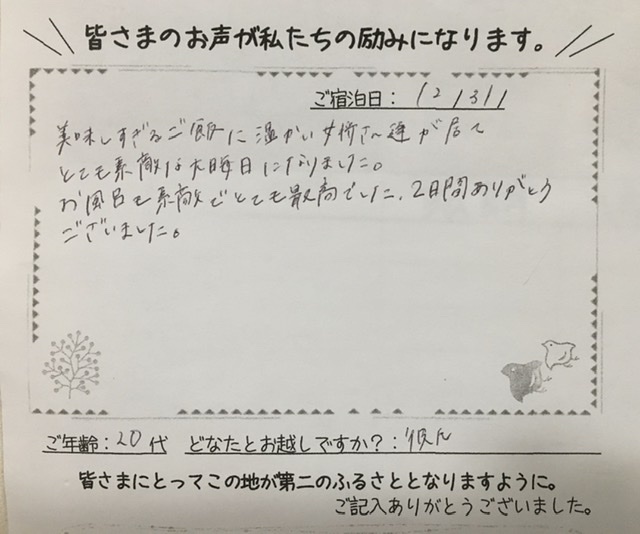 皆さまのお声が私たちの励みになります。
ご宿泊日: 12/31
美味しすぎるご飯に温かい女将さん達が居て
とても素敵な大晦日になりました。
お風呂も素敵でとても最高でした、2日間ありがとう
ございました。
ご年齢:20代 どなたとお越しですか?:彼氏
皆さまにとってこの地が第二のふるさととなりますように。
ご記入ありがとうございました。